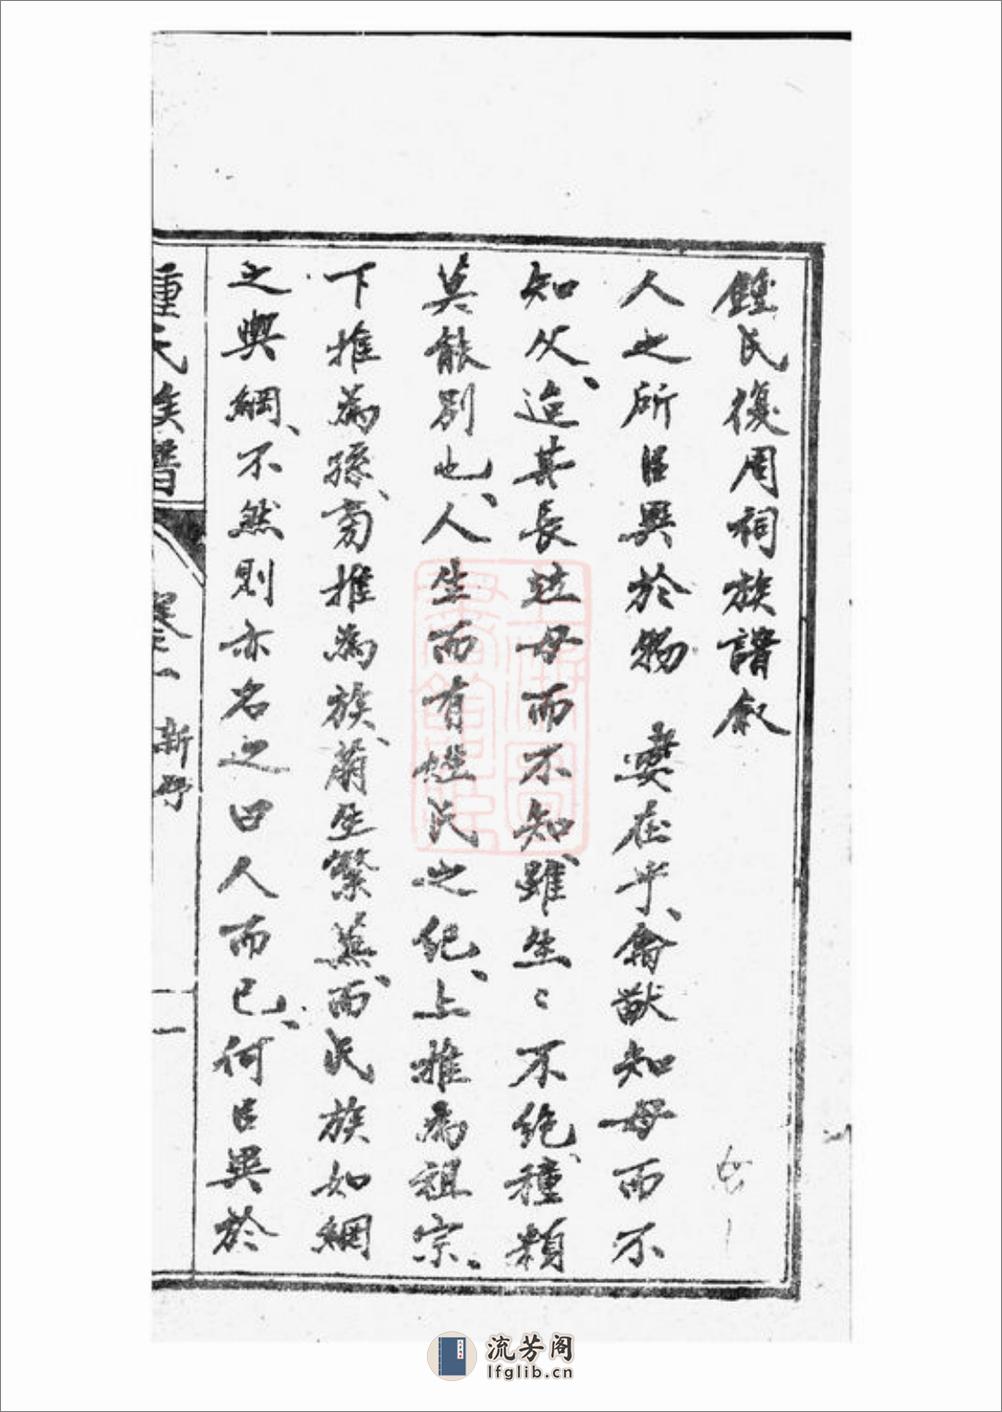 鍾氏復周祠族譜敘
人之所㠯異於物 要在乎、禽獸知母而不
知父、迨其長竝母而不知、雖生〻不絶、種類
莫能别也、人生而有姓氏之紀、上推為祖宗、
下推為孫、旁推為族、萠生繁蕪、而氏族如綱
之與綱、不然則亦名之曰人而已、何㠯異於
鍾氏族譜 卷一 新序 一
流芳阁
lfglib.cn